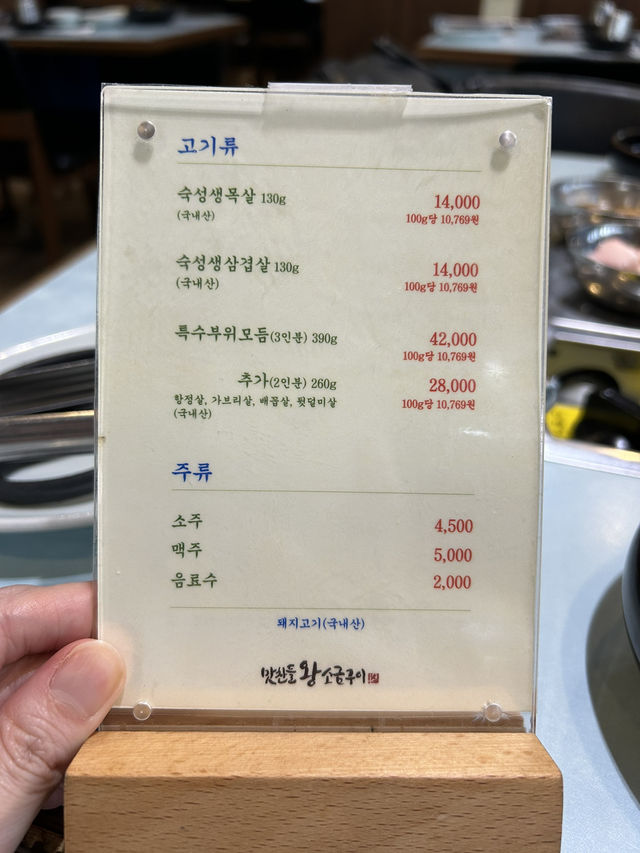 고기류
숙성생목살 130g 14,000
(국내산) 100g당 10,769원
숙성생삼겹살 130g 14,000
(국내산) 100g당 10,769원
특수부위모듬(3인분) 390g 42,000
100g당 10,769원
추가(2인분) 260g 28,000
항정살, 가브리살, 배꼽살, 뒷덜미살 100g당 10,769원
(국내산)
주류
소주 4,500
맥주 5,000
음료수 2,000
돼지고기(국내산)
맛찬들 왕 소금구이